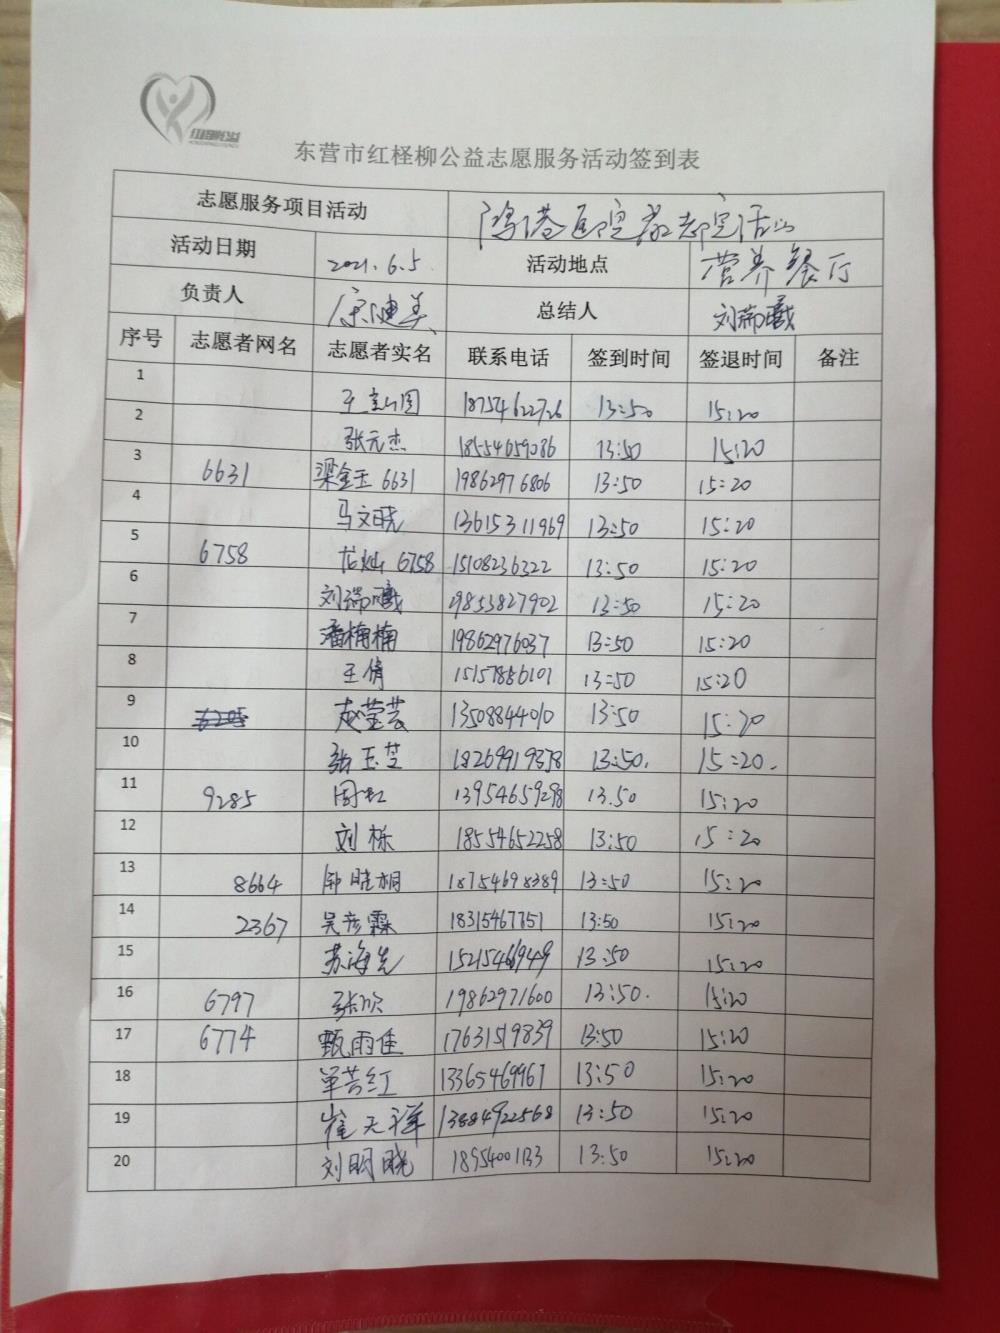 红柽柳公益
东营市红柽柳公益志愿服务活动签到表
志愿服务项目活动 鸿港医院养老院活动
活动日期 2021.6.5. 活动地点 营养餐厅
负责人 总结人 刘瑞曦
序号 志愿者网名 志愿者实名 联系电话 签到时间 签退时间 备注
1 18754622726 13:50 15:20
2 张元杰 18554659086 13:50 15:20
3 6631 梁金玉 6631 19862976806 13:50 15:20
4 马文晓 13615311969 13:50 15:20
5 6758 龙灿 6758 15108236322 13:50 15:20
6 刘瑞曦 19853827902 13:50 15:20
7 潘楠楠 19862976037 13:50 15:20
8 王倩 15157886101 13:50 15:20
9 赵莹芸 13508844010 13:50 15:20
10 张玉芝 18269919378 13:50. 15:20.
11 9285 周红 13954659298 13.50 15:20
12 刘栎 18554652258 13:50 15:20
13 8664 郭晓桐 18754698389 13:50 15:20
14 2367 吴彦霖 18315467751 13:50 15:20
15 苏海先 15215466949 13:50 15:20
16 6797 张欣 19862971600 13:50. 15:20
17 6774 甄雨佳 17631519839 13:50 15:20
18 单芸红 13365469967 13:50 15:20
19 崔天祥 13884922568 13:50 15:20
20 刘明晓 18954001133 13:50 15:20